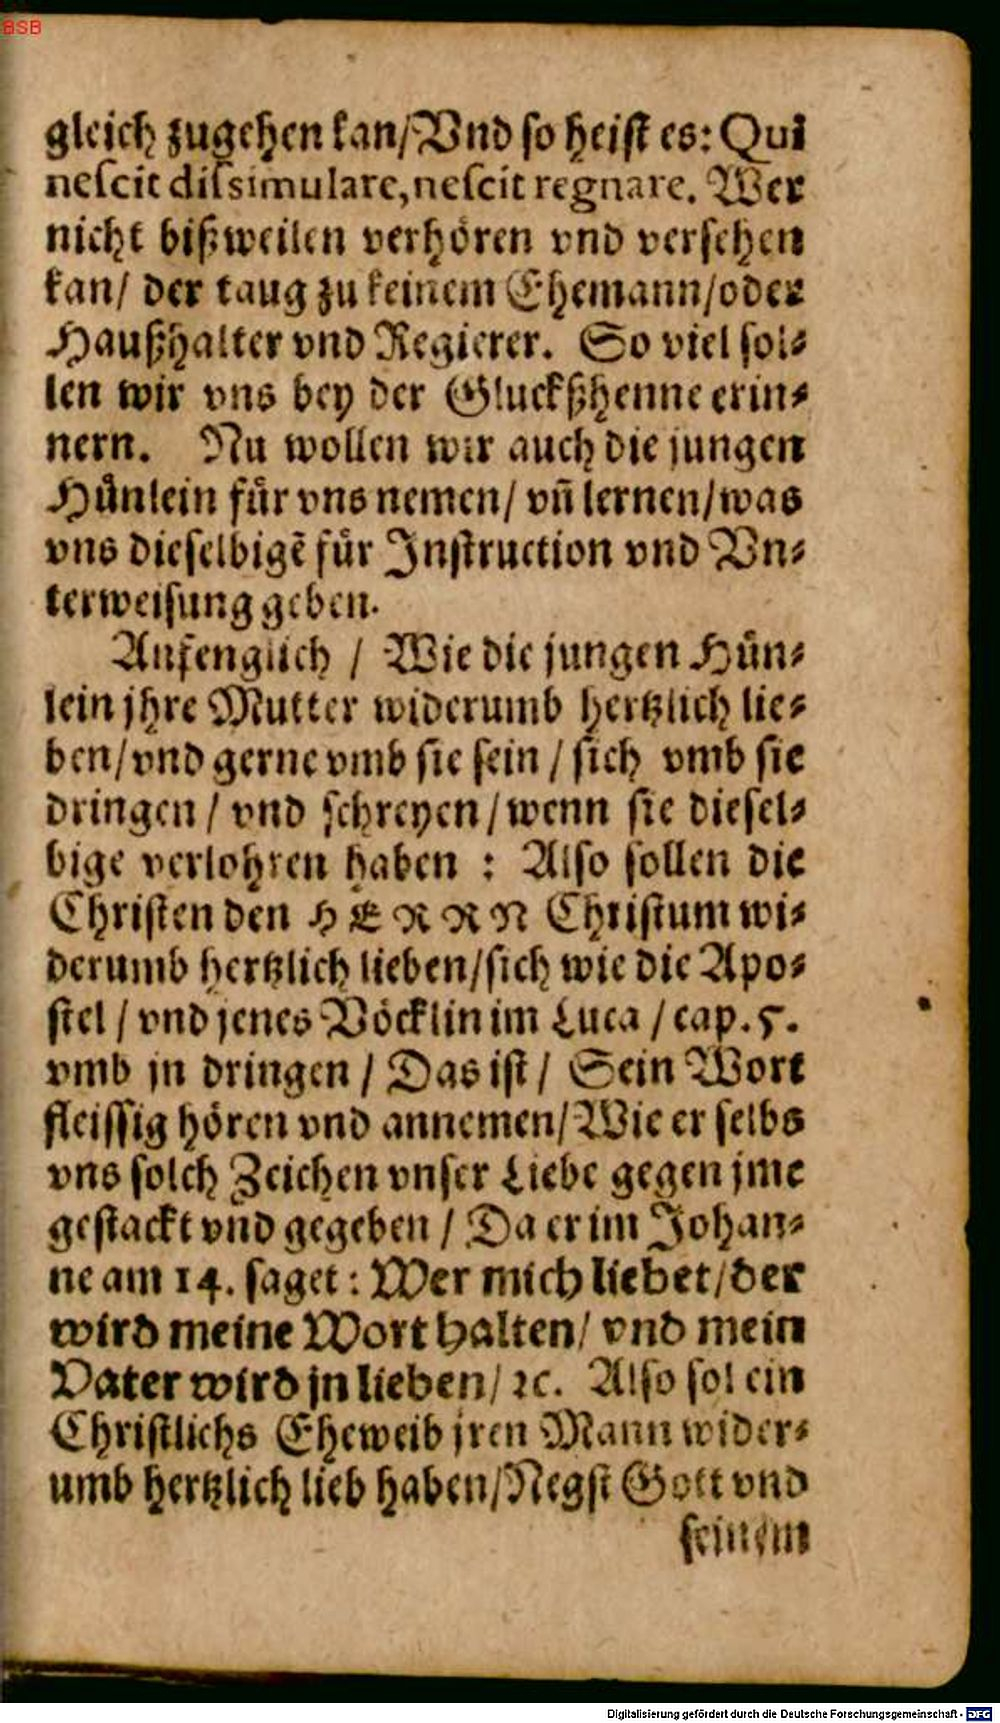 BSB
gleich zugehen kan/Vnd so heist es: Qui
nescit dissimulare, nescit regnare. Wer
nicht bißweilen verhören vnd versehen
kan/ der taug zu keinem Ehemann/oder
Haußhalter vnd Regierer. So viel sol⸗
len wir vns bey der Gluckßhenne erin⸗
nern. Nu wollen wir auch die jungen
Hůnlein fůr vns nemen/ vñ lernen/was
vns dieselbigẽ fůr Instruction vnd Vn⸗
terweisung geben.
Anfenglich / Wie die jungen Hůn⸗
lein jhre Mutter widerumb hertzlich lie⸗
ben/vnd gerne vmb sie sein / sich vmb sie
dringen / vnd schreyen/wenn sie diesel⸗
bige verlohren haben : Also sollen die
Christen den HERRN Christum wi⸗
derumb hertzlich lieben/sich wie die Apo⸗
stel / vnd jenes Völcklin im Luca / cap. 5.
vmb jn dringen / Das ist / Sein Wort
fleissig hören vnd annemen/Wie er selbs
vns solch Zeichen vnser Liebe gegen jme
gestackt vnd gegeben / Da er im Johan⸗
ne am 14. saget: Wer mich liebet/der
wird meine Wort halten/ vnd mein
Vater wird jn lieben/ ꝛc. Also sol ein
Christlichs Eheweib jren Mann wider⸗
umb hertzlich lieb haben/Negst Gott vnd
seinem
Digitalisierung gefördert durch die Deutsche Forschungsgemeinschaft - DFG